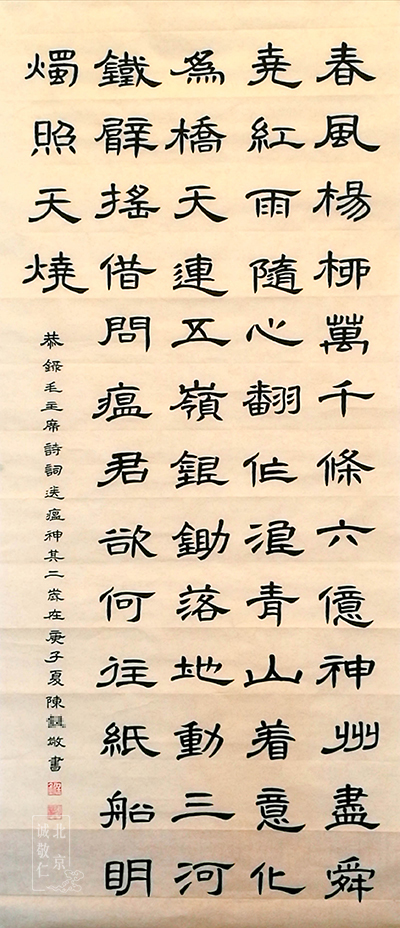 春風楊柳萬千條六億神州盡舜
堯紅雨隨心翻作浪青山着意化
為橋天連五嶺銀鋤落地動三河
鐵臂搖借問瘟君欲何往紙船明
燭照天燒
恭錄毛主席詩詞送瘟神其二歲在庚子夏陳敬書
北京
敬仁